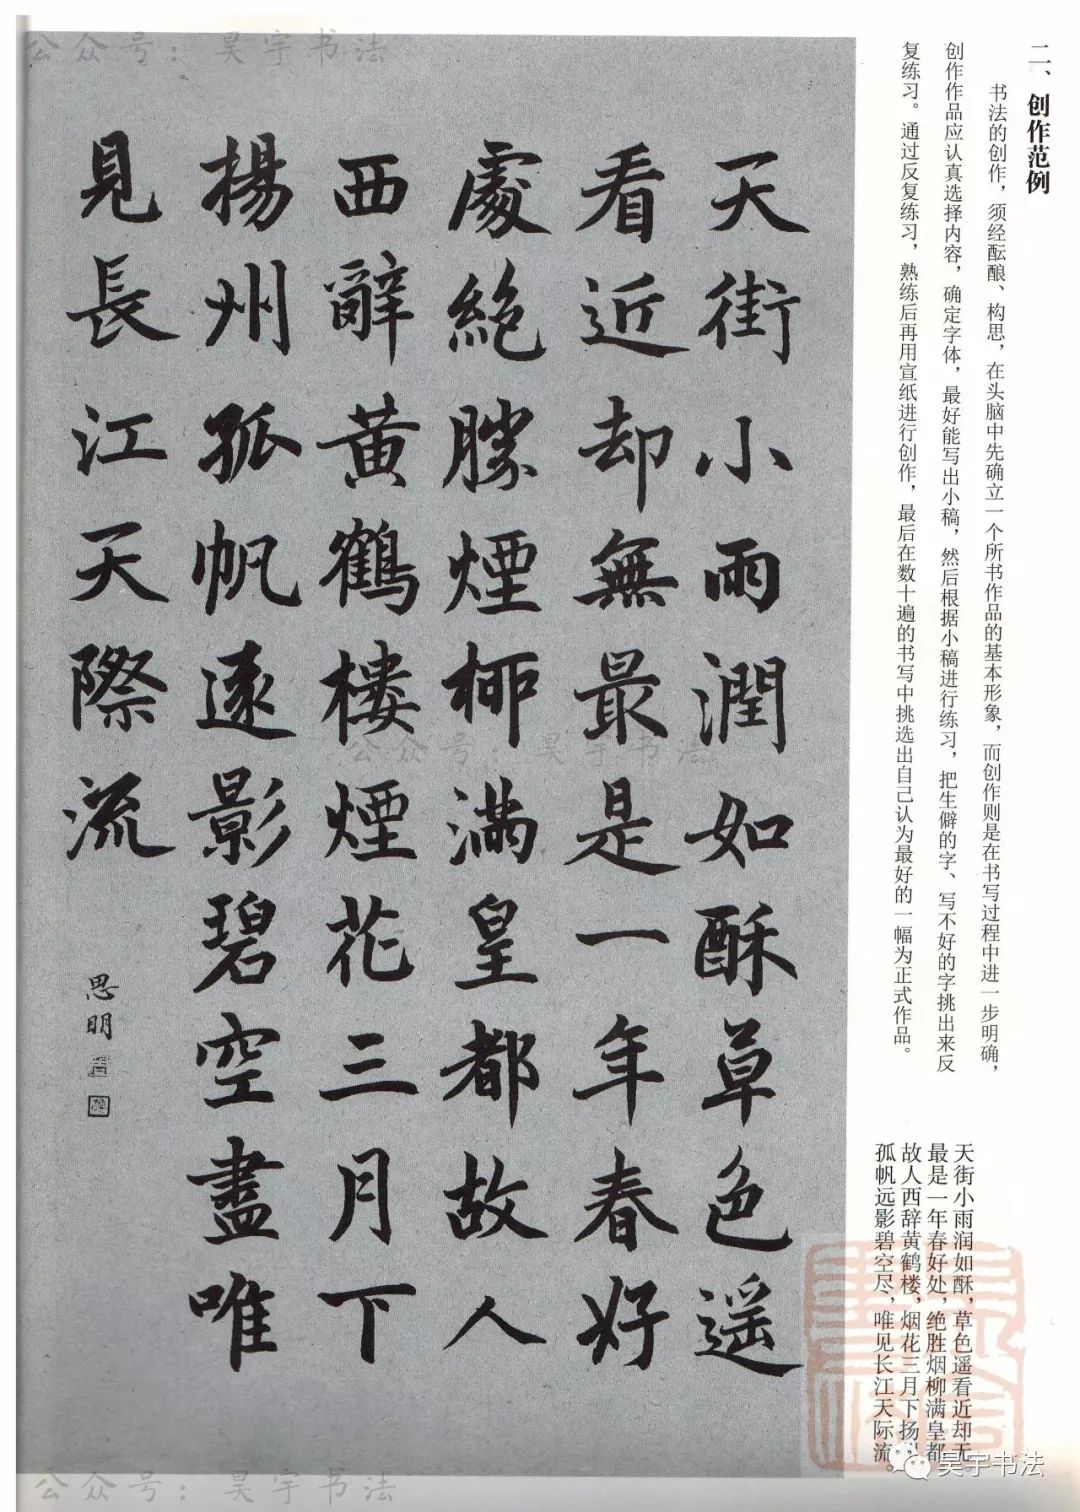 二、创作范例
书法的创作，须经酝酿、构思，在头脑中先确立一个所书作品的基本形象，而创作则是在书写过程中进一步明确，
创作作品应认真选择内容，确定字体，最好能写出小稿，然后根据小稿进行练习，把生僻的字、写不好的字挑出来反
复练习。通过反复练习，熟练后再用宣纸进行创作，最后在数十遍的书写中挑选出自己认为最好的一幅为正式作品。
天街小雨润如酥，草色遥看近却无
最是一年春好处，绝胜烟柳满皇都
故人西辞黄鹤楼，烟花三月下扬
孤帆远影碧空尽，唯见长江天际流。
天街小雨潤如酥草色遥
看近却無最是一年春好
處絶勝煙柳滿皇都故人
西辭黄鶴樓煙花三月下
揚州孤帆遠影碧空盡唯
見長江天際流
思明
公众号：昊宇书法
公众号：昊宇书法
公众号：昊宇书法
昊宇书法